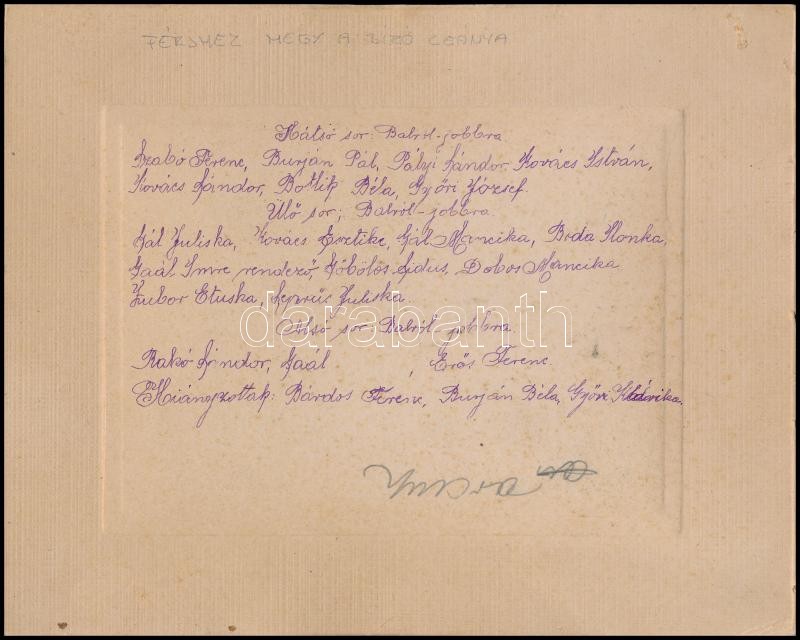 FÉRJHEZ MEGY A BIRÓ LEÁNYA
Hátsó sor: Balról-jobbra
Szabó Ferenc, Burján Pál, Pályi Sándor, Kovács István,
Kovács Sándor, Botlik Béla, Győri József.
Ülő sor; Balról-jobbra.
Gál Juliska, Kovács Esztike, Gál Mancika, Boda Ilonka,
Gaál Imre rendező, Göbölös Lidus, Dobos Mancika
Zubor Etuska, Juliska.
darabanth
Alsó sor: Balról-jobbra.
Rakó Sándor, Gaál , Erős Ferenc.
Hiányzottak: Bárdos Ferenc, Burján Béla, Győri